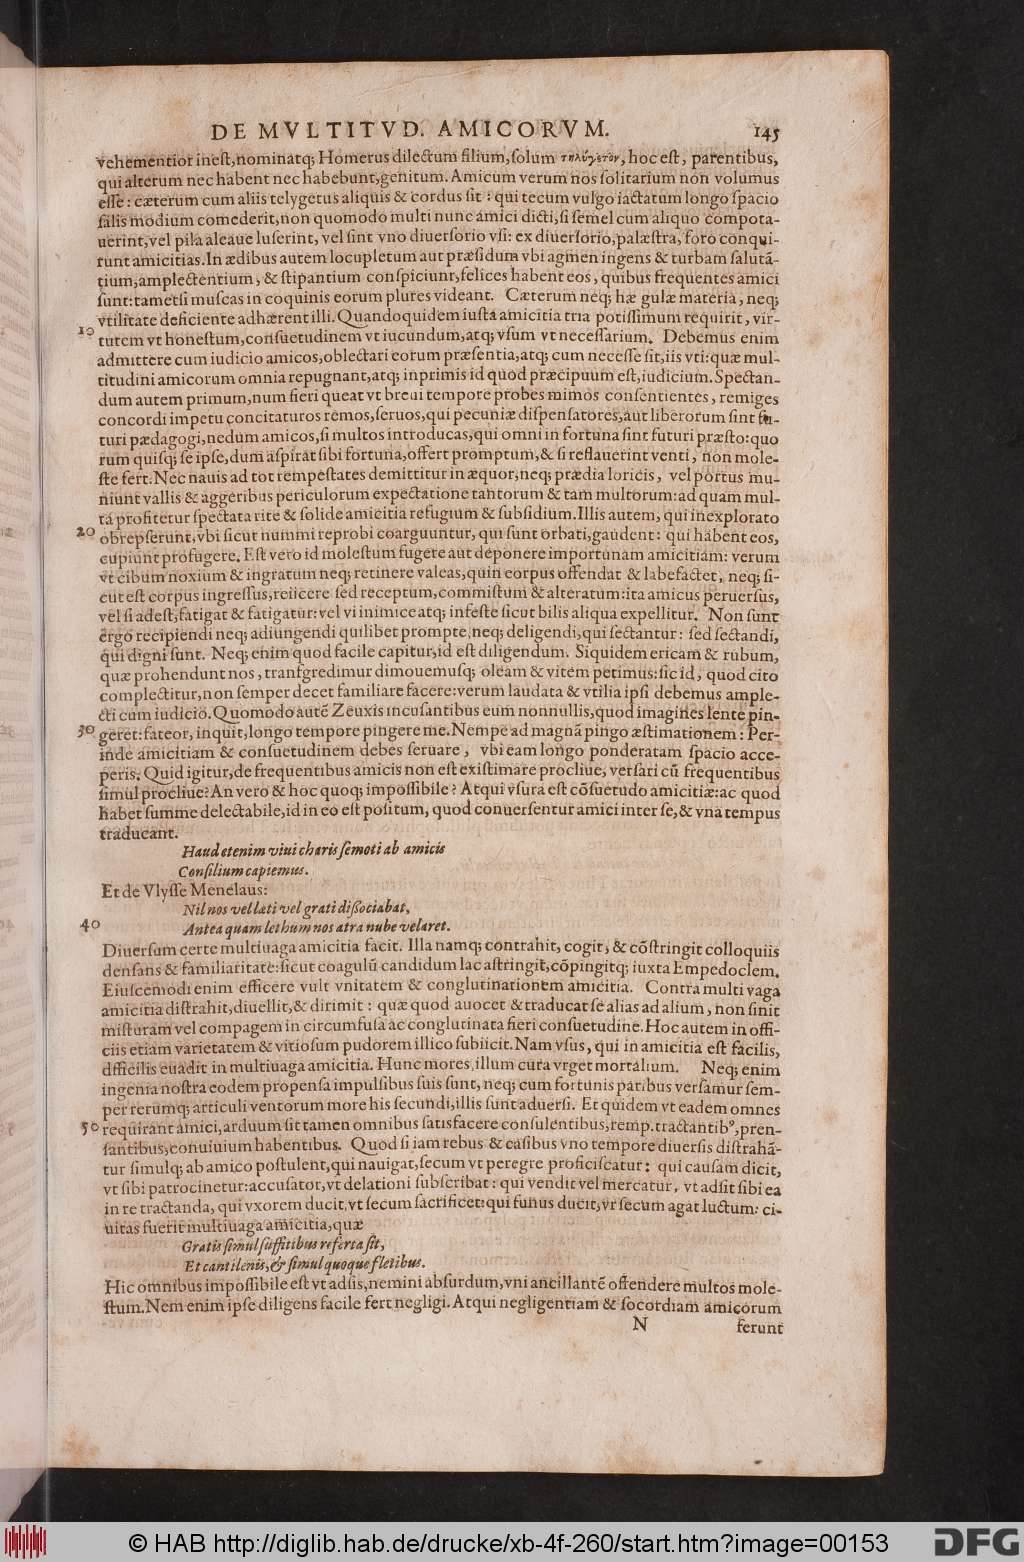 DE MVLTITVD. AMICORVM. 145
vehementior inest,nominatq; Homerus dilectum filium,solum τηλύγετον, hoc est, parentibus,
qui alterum nec habent nec habebunt,genitum. Amicum verum nos solitarium non volumus
esse : cæterum cum aliis telygetus aliquis & cordus sit : qui tecum vulgo iactatum longo spacio
salis modium comederit,non quomodo multi nunc amici dicti,si semel cum aliquo compota-
uerint,vel pila aleaue luserint, vel sint vno diuersorio vsi: ex diuersorio,palæstra, foro conqui-
runt amicitias.In ædibus autem locupletum aut præsidum vbi agmen ingens & turbam salutā-
tium,amplectentium, & stipantium conspiciunt,felices habent eos, quibus frequentes amici
sunt:tametsi muscas in coquinis eorum plures videant. Cæterum neq; hæ gulæ materia, neq;
vtilitate deficiente adhærent illi. Quandoquidem iusta amicitia tria potissimum requirit, vir-
10 tutem vt honestum,consuetudinem vt iucundum,atq; vsum vt necessarium. Debemus enim
admittere cum iudicio amicos,oblectari eorum præsentia,atq; cum necesse sit,iis vti:quæ mul-
titudini amicorum omnia repugnant,atq; inprimis id quod præcipuum est,iudicium. Spectan-
dum autem primum,num fieri queat vt breui tempore probes mimos consentientes, remiges
concordi impetu concitaturos remos,seruos,qui pecuniæ dispensatores,aut liberorum sint fu-
turi pædagogi,nedum amicos,si multos introducas,qui omni in fortuna sint futuri præsto:quo
rum quisq; se ipse,dum aspirat sibi fortuna,offert promptum,& si reflauerint venti, non mole-
ste fert. Nec nauis ad tot tempestates demittitur in æquor,neq; prædia loricis, vel portus mu-
niunt vallis & aggeribus periculorum expectatione tantorum & tam multorum:ad quam mul-
ta profitetur spectata rite & solide amicitia refugium & subsidium. Illis autem, qui inexplorato
20 obrepserunt,vbi sicut nummi reprobi coarguuntur, qui sunt orbati,gaudent: qui habent eos,
cupiunt profugere. Est vero id molestum fugere aut deponere importunam amicitiam: verum
vt cibum noxium & ingratum neq; retinere valeas,quin corpus offendat & labefactet, neq; si-
cut est corpus ingressus,reiicere sed receptum,commistum & alteratum:ita amicus peruersus,
vel si adest,fatigat & fatigatur:vel vi inimice atq; infeste sicut bilis aliqua expellitur. Non sunt
ergo recipiendi neq; adiungendi quilibet prompte,neq; deligendi,qui sectantur: sed sectandi,
qui digni sunt. Neq; enim quod facile capitur,id est diligendum. Siquidem ericam & rubum,
quæ prohendunt nos, transgredimur dimouemusq; oleam & vitem petimus:sic id, quod cito
complectitur,non semper decet familiare facere:verum laudata & vtilia ipsi debemus ample-
cti cum iudicio. Quomodo autē Zeuxis incusantibus eum nonnullis,quod imagines lente pin-
30 geret:fateor, inquit,longo tempore pingere me. Nempe ad magnā pingo æstimationem : Per-
inde amicitiam & consuetudinem debes seruare, vbi eam longo ponderatam spacio acce-
peris. Quid igitur,de frequentibus amicis non est existimare procliue, versari cū frequentibus
simul procliue? An vero & hoc quoq; impossibile? Atqui vsura est cōsuetudo amicitiæ:ac quod
habet summe delectabile,id in eo est positum, quod conuersentur amici inter se,& vna tempus
traducant.
Haud etenim viui charis semoti ab amicis
Consilium capiemus.
Et de Vlysse Menelaus:
Nil nos vel læti vel grati dissociabat,
40 Antea quam lethum nos atra nube velaret.
Diuersum certe multiuaga amicitia facit. Illa namq; contrahit, cogit, & cōstringit colloquiis
densans & familiaritate:sicut coagulū candidum lac astringit,cōpingitq; iuxta Empedoclem.
Eiuscemodi enim efficere vult vnitatem & conglutinationem amicitia. Contra multi vaga
amicitia distrahit,diuellit,& dirimit : quæ quod auocet & traducat se alias ad alium, non sinit
misturam vel compagem in circumfusa ac conglutinata fieri consuetudine. Hoc autem in offi-
ciis etiam varietatem & vitiosum pudorem illico subiicit. Nam vsus, qui in amicitia est facilis,
dfficilis euadit in multiuaga amicitia. Hunc mores,illum cura vrget mortalium. Neq; enim
ingenia nostra eodem propensa impulsibus suis sunt, neq; cum fortunis paribus versamur sem-
per rerumq; articuli ventorum more his secundi,illis sunt aduersi. Et quidem vt eadem omnes
50 requirant amici,arduum sit tamen omnibus satisfacere consulentibus,remp.tractantib⁹,pren-
santibus,conuiuium habentibus. Quod si iam rebus & casibus vno tempore diuersis distrahā-
tur simulq; ab amico postulent,qui nauigat,secum vt peregre proficiscatur: qui causam dicit,
vt sibi patrocinetur:accusator,vt delationi subscribat : qui vendit vel mercatur, vt adsit sibi ea
in re tractanda, qui vxorem ducit,vt secum sacrificet:qui funus ducit,vt secum agat luctum: ci-
uitas fuerit multiuaga amicitia,quæ
Gratis simul suffitibus referta sit,
Et cantilenis,& simul quoque fletibus.
Hic omnibus impossibile est vt adsis,nemini absurdum,vni ancillantē offendere multos mole-
stum. Nem enim ipse diligens facile fert negligi. Atqui negligentiam & socordiam amicorum
N ferunt
© HAB http://diglib.hab.de/drucke/xb-4f-260/start.htm?image=00153
DFG